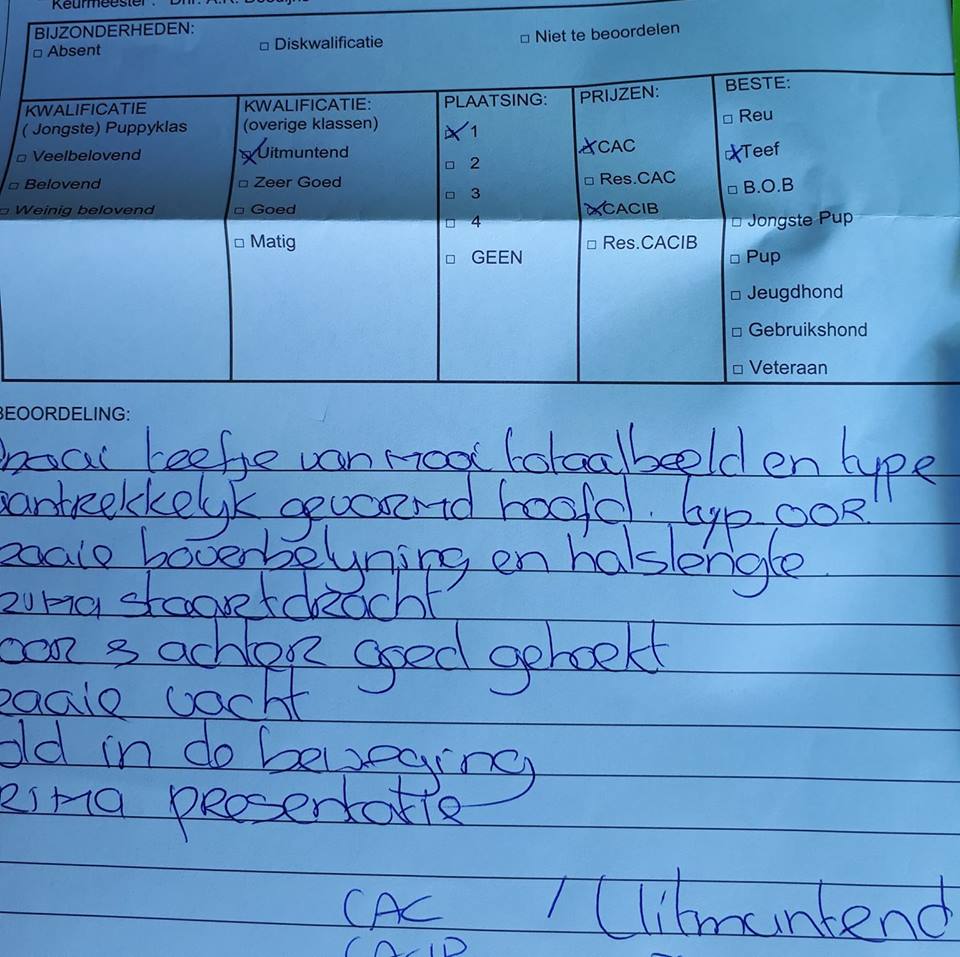 Keurmeester: Dhr. A.R.
BIJZONDERHEDEN:
□ Absent □ Diskwalificatie □ Niet te beoordelen
KWALIFICATIE
( Jongste) Puppyklas
□ Veelbelovend
□ Belovend
□ Weinig belovend
KWALIFICATIE:
(overige klassen)
☒ Uitmuntend
□ Zeer Goed
□ Goed
□ Matig
PLAATSING:
☒ 1
□ 2
□ 3
□ 4
□ GEEN
PRIJZEN:
☒ CAC
□ Res.CAC
☒ CACIB
□ Res.CACIB
BESTE:
□ Reu
☒ Teef
□ B.O.B
□ Jongste Pup
□ Pup
□ Jeugdhond
□ Gebruikshond
□ Veteraan
BEOORDELING:
teefje van mooi totaalbeeld en type
aantrekkelyk gevormd hoofd. typ oor
bovenbelyning en halslengte
staartdracht
achter goed gehoekt
vacht
in de beweging
presentatie
CAC / Uitmuntend
CACIB